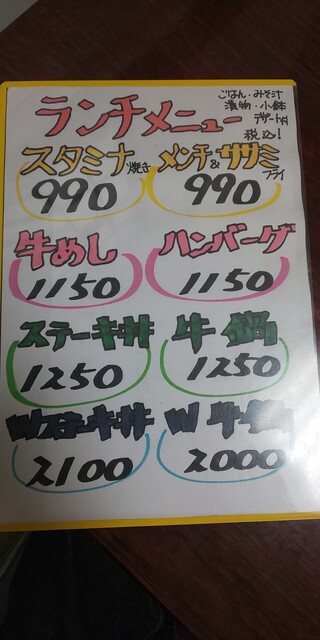 ランチメニュー
ごはん・みそ汁
漬物・小鉢
デザート付
税込!
スタミナ焼き
990
メンチ&ササミフライ
990
牛めし
1150
ハンバーグ
1150
ステーキ丼
1250
牛鍋
1250
Wステーキ丼
2100
W牛鍋
2000